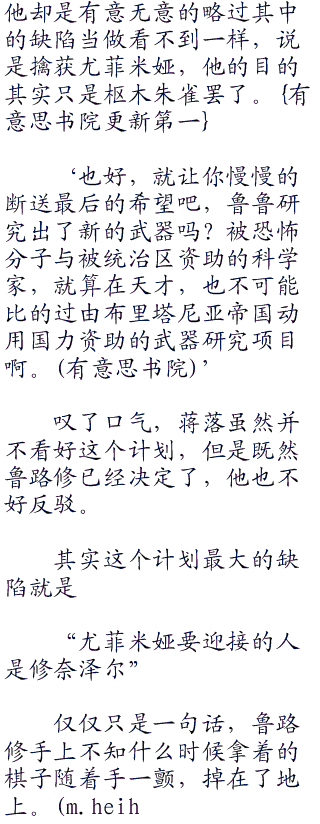 他却是有意无意的略过其中
的缺陷当做看不到一样，说
是擒获尤菲米娅，他的目的
其实只是枢木朱雀罢了。{有
意思书院更新第一}
‘也好，就让你慢慢的
断送最后的希望吧，鲁鲁研
究出了新的武器吗？被恐怖
分子与被统治区资助的科学
家，就算在天才，也不可能
比的过由布里塔尼亚帝国动
用国力资助的武器研究项目
啊。(有意思书院)’
叹了口气，蒋落虽然并
不看好这个计划，但是既然
鲁路修已经决定了，他也不
好反驳。
其实这个计划最大的缺
陷就是
“尤菲米娅要迎接的人
是修奈泽尔”
仅仅只是一句话，鲁路
修手上不知什么时候拿着的
棋子随着手一颤，掉在了地
上。(m.heih